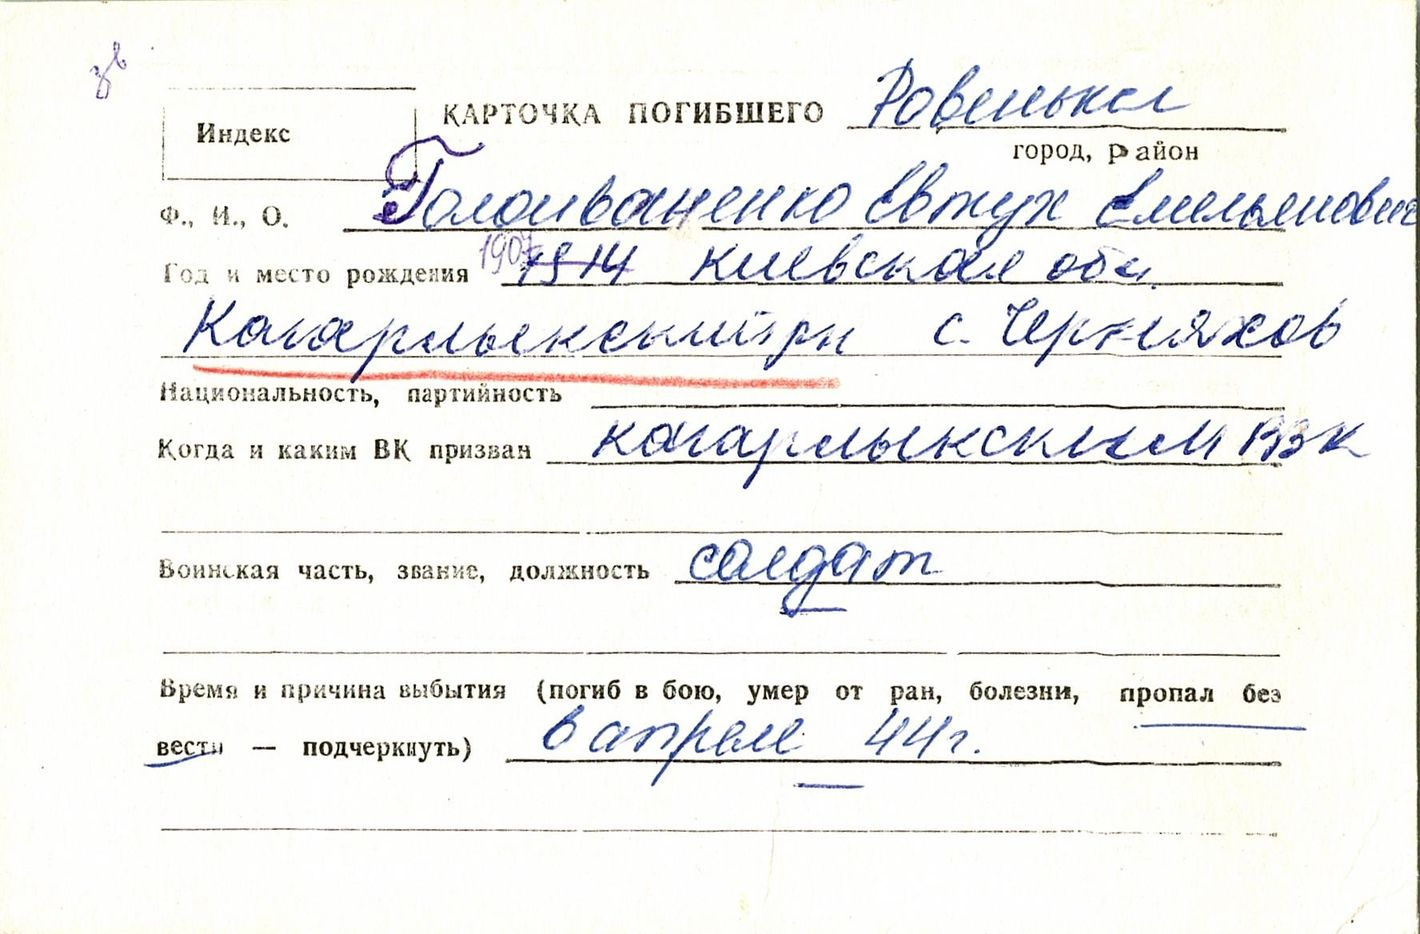 зв
КАРТОЧКА ПОГИБШЕГО Ровеньки
Индекс
город, район
Ф., И., О. Голоиваненко Евтух Емельянович
Год и место рождения 1907 1914 Киевская обл.
Кагарлыкский рн с. Черняхов
Национальность, партийность
Когда и каким ВК призван кагарлыкским РВК
Воинская часть, звание, должность солдат
Время и причина выбытия (погиб в бою, умер от ран, болезни, пропал без
вести — подчеркнуть) в апреле 44г.